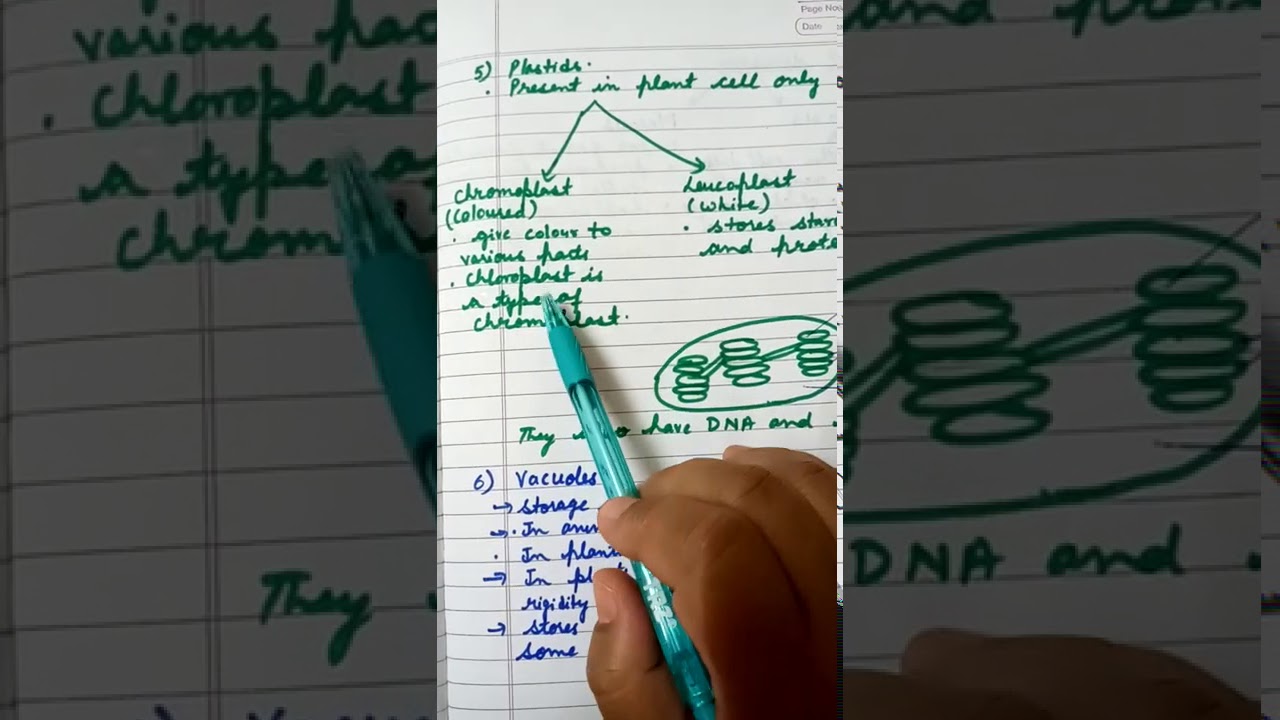 Page No
Date
5) Plastids.
. Present in plant cell only
Chromoplast
(coloured)
. give colour to
various parts
. chloroplast is
a type of
Leucoplast
(white)
. stores
and
They have DNA and
6) Vacuoles
→ storage
→ . In
. In
→ In
rigidity
→ stores
some